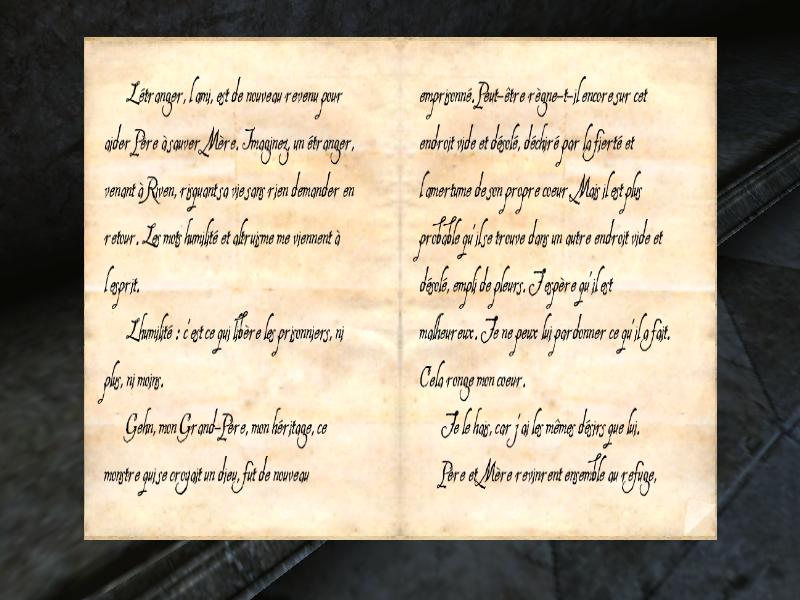 L'étranger, l'ami, est de nouveau revenu pour
aider Père à sauver Mère. Imaginez, un étranger,
venant à Riven, risquant sa vie sans rien demander en
retour. Les mots humilité et altruisme me viennent à
l'esprit.
L'humilité : c'est ce qui libère les prisonniers, ni
plus, ni moins.
Gehn, mon Grand-Père, mon héritage, ce
monstre qui se croyait un dieu, fut de nouveau
emprisonné. Peut-être règne-t-il encore sur cet
endroit vide et désolé, déchiré par la fierté et
l'amertume de son propre coeur. Mais il est plus
probable qu'il se trouve dans un autre endroit vide et
désolé, empli de pleurs. J'espère qu'il est
malheureux. Je ne peux lui pardonner ce qu'il a fait.
Cela ronge mon coeur.
Je le hais, car j'ai les mêmes désirs que lui.
Père et Mère revinrent ensemble au refuge,